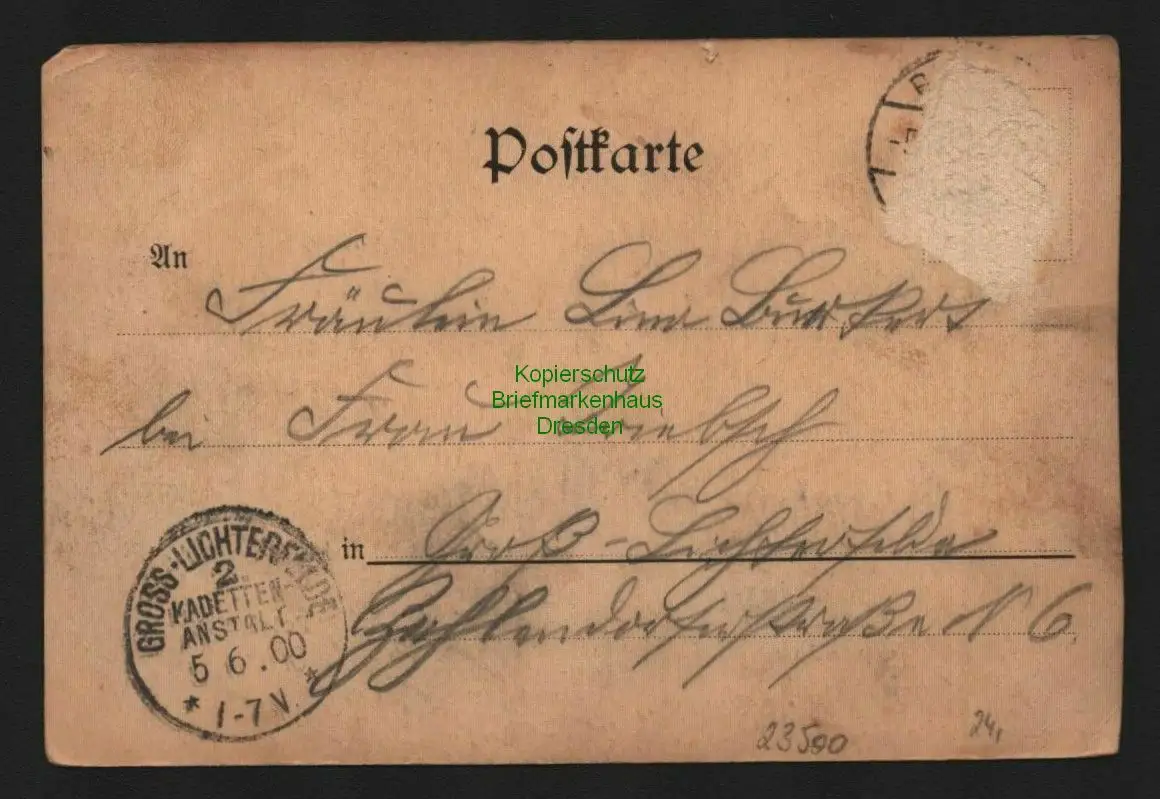 Postkarte
An
Fräulein Lina Burkert
bei Frau Liebsch
Kopierschutz
Briefmarkenhaus
Dresden
in Groß-Lichterfelde
Zehlendorferstraße N 6.
GROSS-LICHTERFELDE
2.
KADETTEN-
ANSTALT
5 6.00
* 1-7 V. *
23500
24,